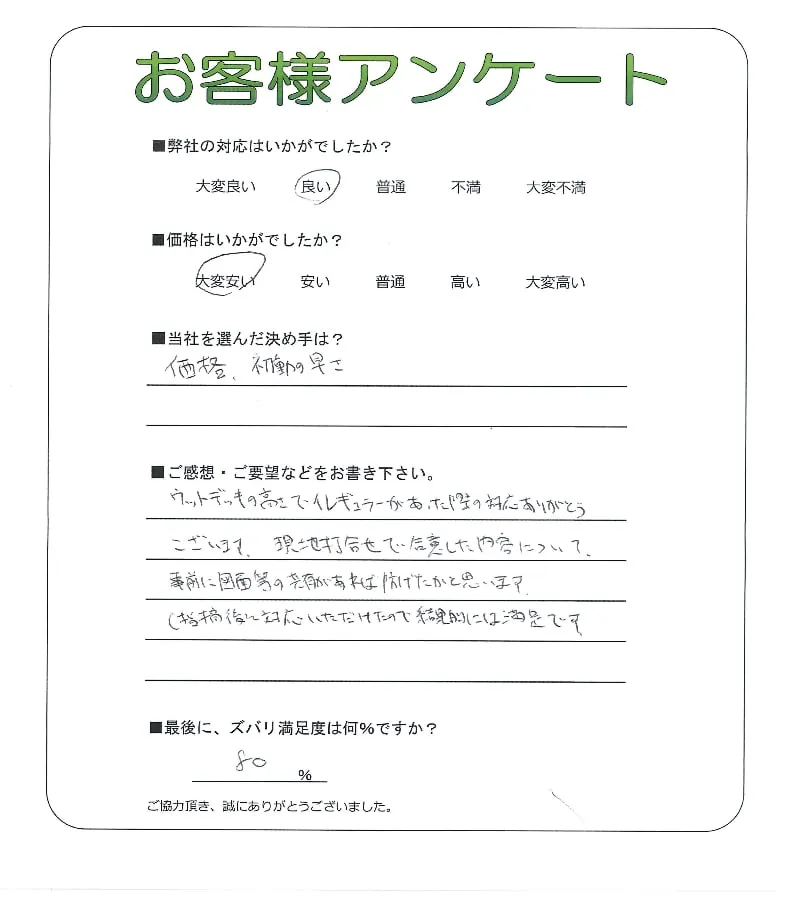 お客様アンケート
■弊社の対応はいかがでしたか？
大変良い 良い 普通 不満 大変不満
■価格はいかがでしたか？
大変安い 安い 普通 高い 大変高い
■当社を選んだ決め手は？
価格、初動の早さ
■ご感想・ご要望などをお書き下さい。
ウットデッキの高さでイレギュラーがあった際の対応ありがとう
ございます。現地打合せで合意した内容について、
事前に図面等の共有があれば防げたかと思います。
後に対応いただけたので結果的には満足です
■最後に、ズバリ満足度は何%ですか？
80 %
ご協力頂き、誠にありがとうございました。